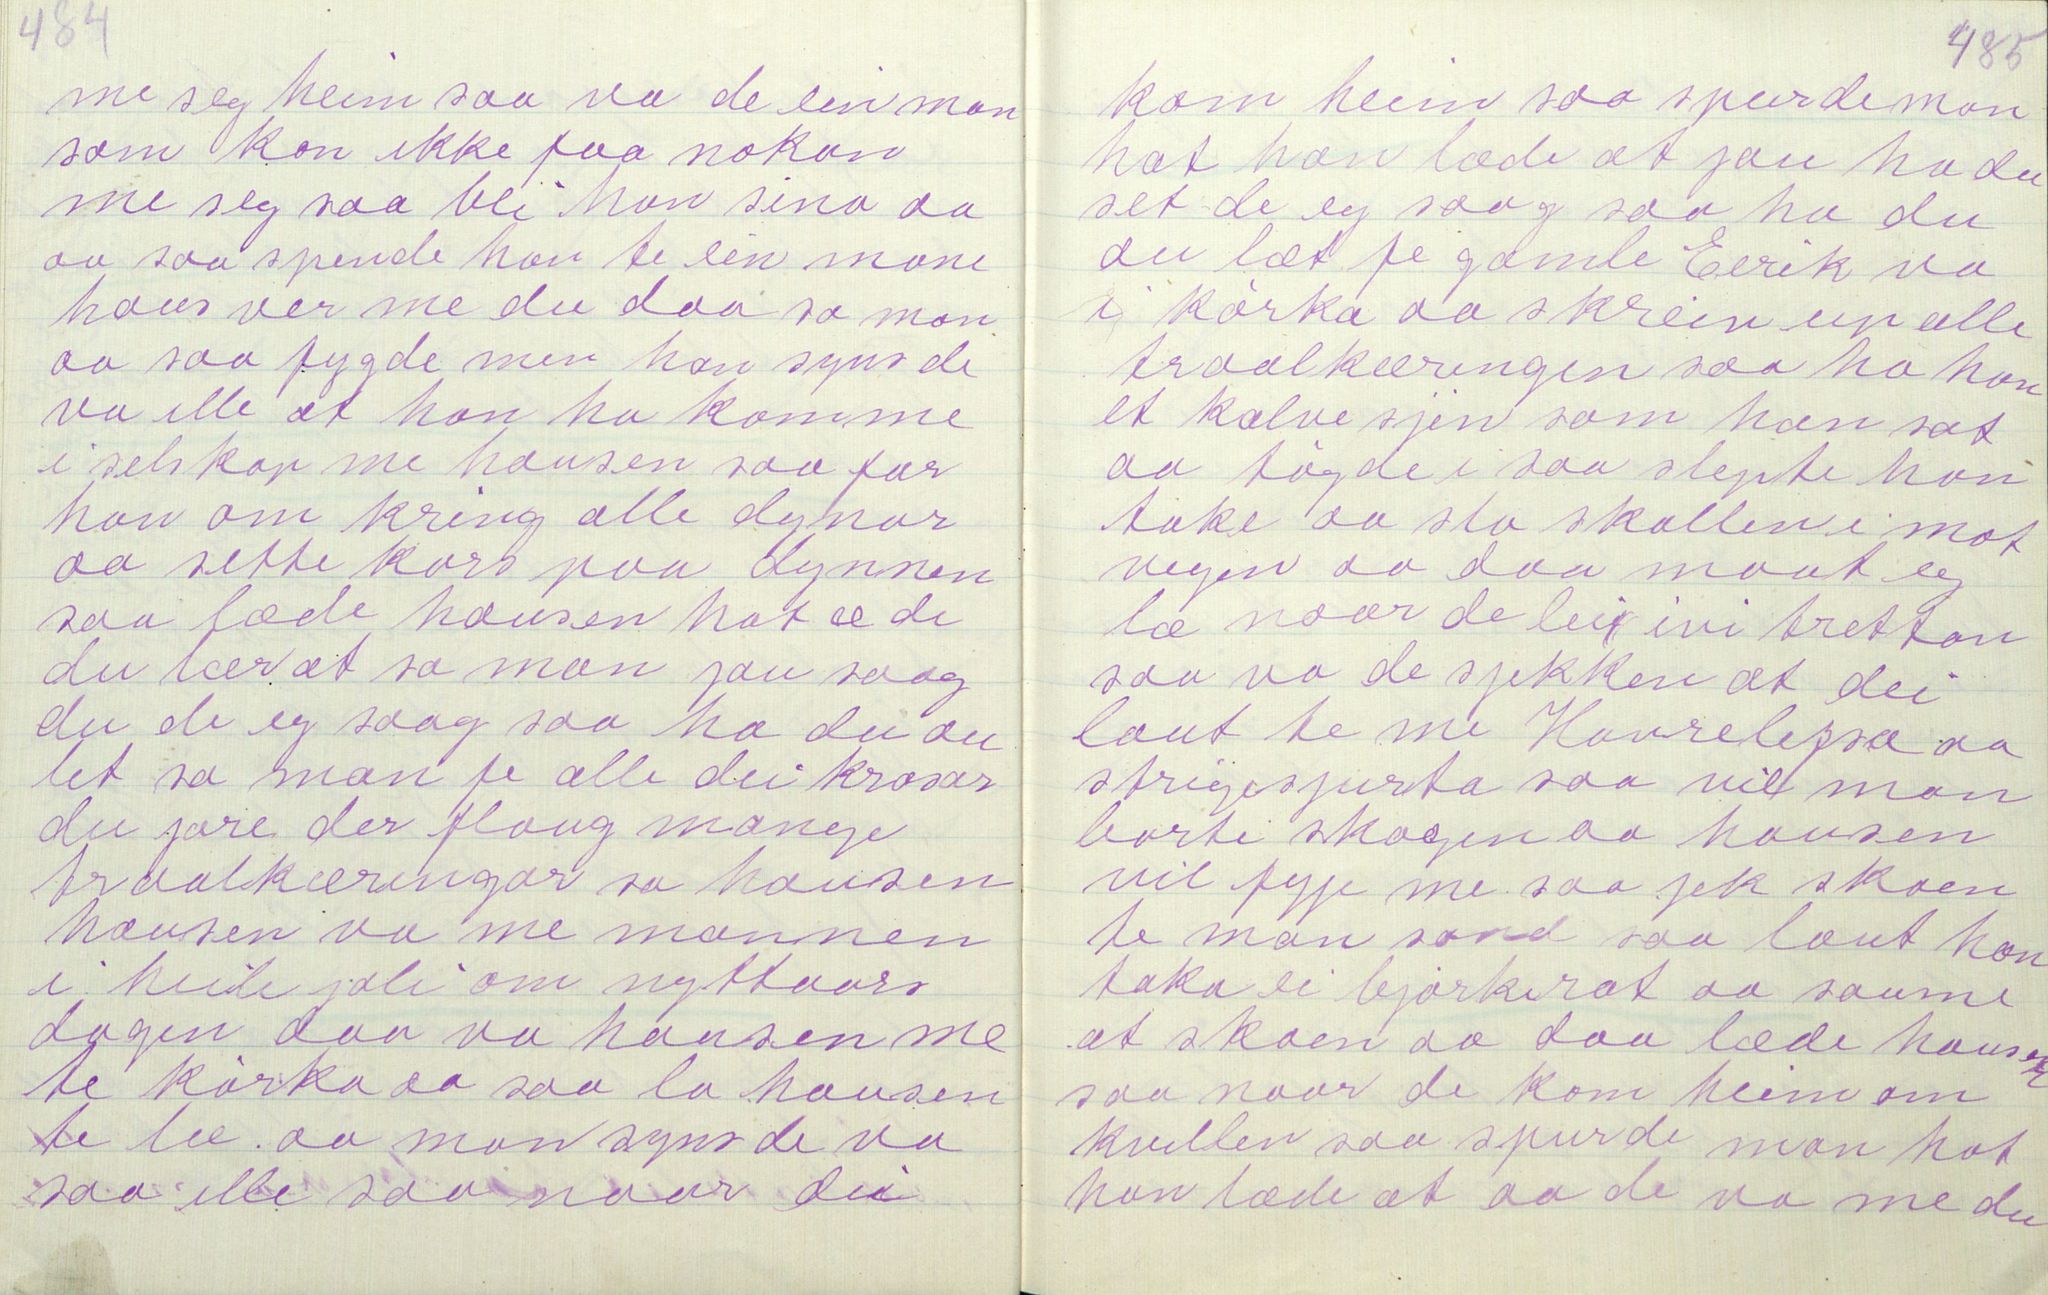 484
me seg heim saa va de ein man
som kan ikke faa nokan
me seg saa blei han sina aa
aa saa spende han te ein mane
haus ver me du daa sa man
aa saa fygde men han syns de
va ille at han ha komme
i selskap me hausen saa far
han om kring alle dynar
aa sette kors paa dynnen
saa læde hausen hat æ de
du lær at sa man jau saag
du de eg saag saa ha du au
let sa man fe alle dei krosar
du jore der floug mange
traalkæringar sa hausen
hausen va me mannen
i heile jole om nyttaars
dagen daa va hausen me
te kòrka aa saa la hausen
te le aa man syns de va
saa ille saa naar dei
485
kom heim saa spurde man
hat han læde at jau ha du
set de eg saag saa ha du
au læt fe gamle Eerik va
i kòrka aa skrein up alle
traalkæringen saa ha han
et kalve sjin som han sat
aa tògde i saa slepte han
take aa sla skallen i mot
vegen aa daa maat eg
læ naar de lei ivi trettan
saa va de sjekken at dei
laut te me Havrelepsa aa
strigespurta saa vil man
borti skogen aa hausen
vil fyje me saa jek skoen
te man sond saa laut han
taka ei bjørkerot aa saume
at skoen aa daa læde hausen
saa naar de kom heim om
kvellen saa spurde man hat
han læde at aa de va me du